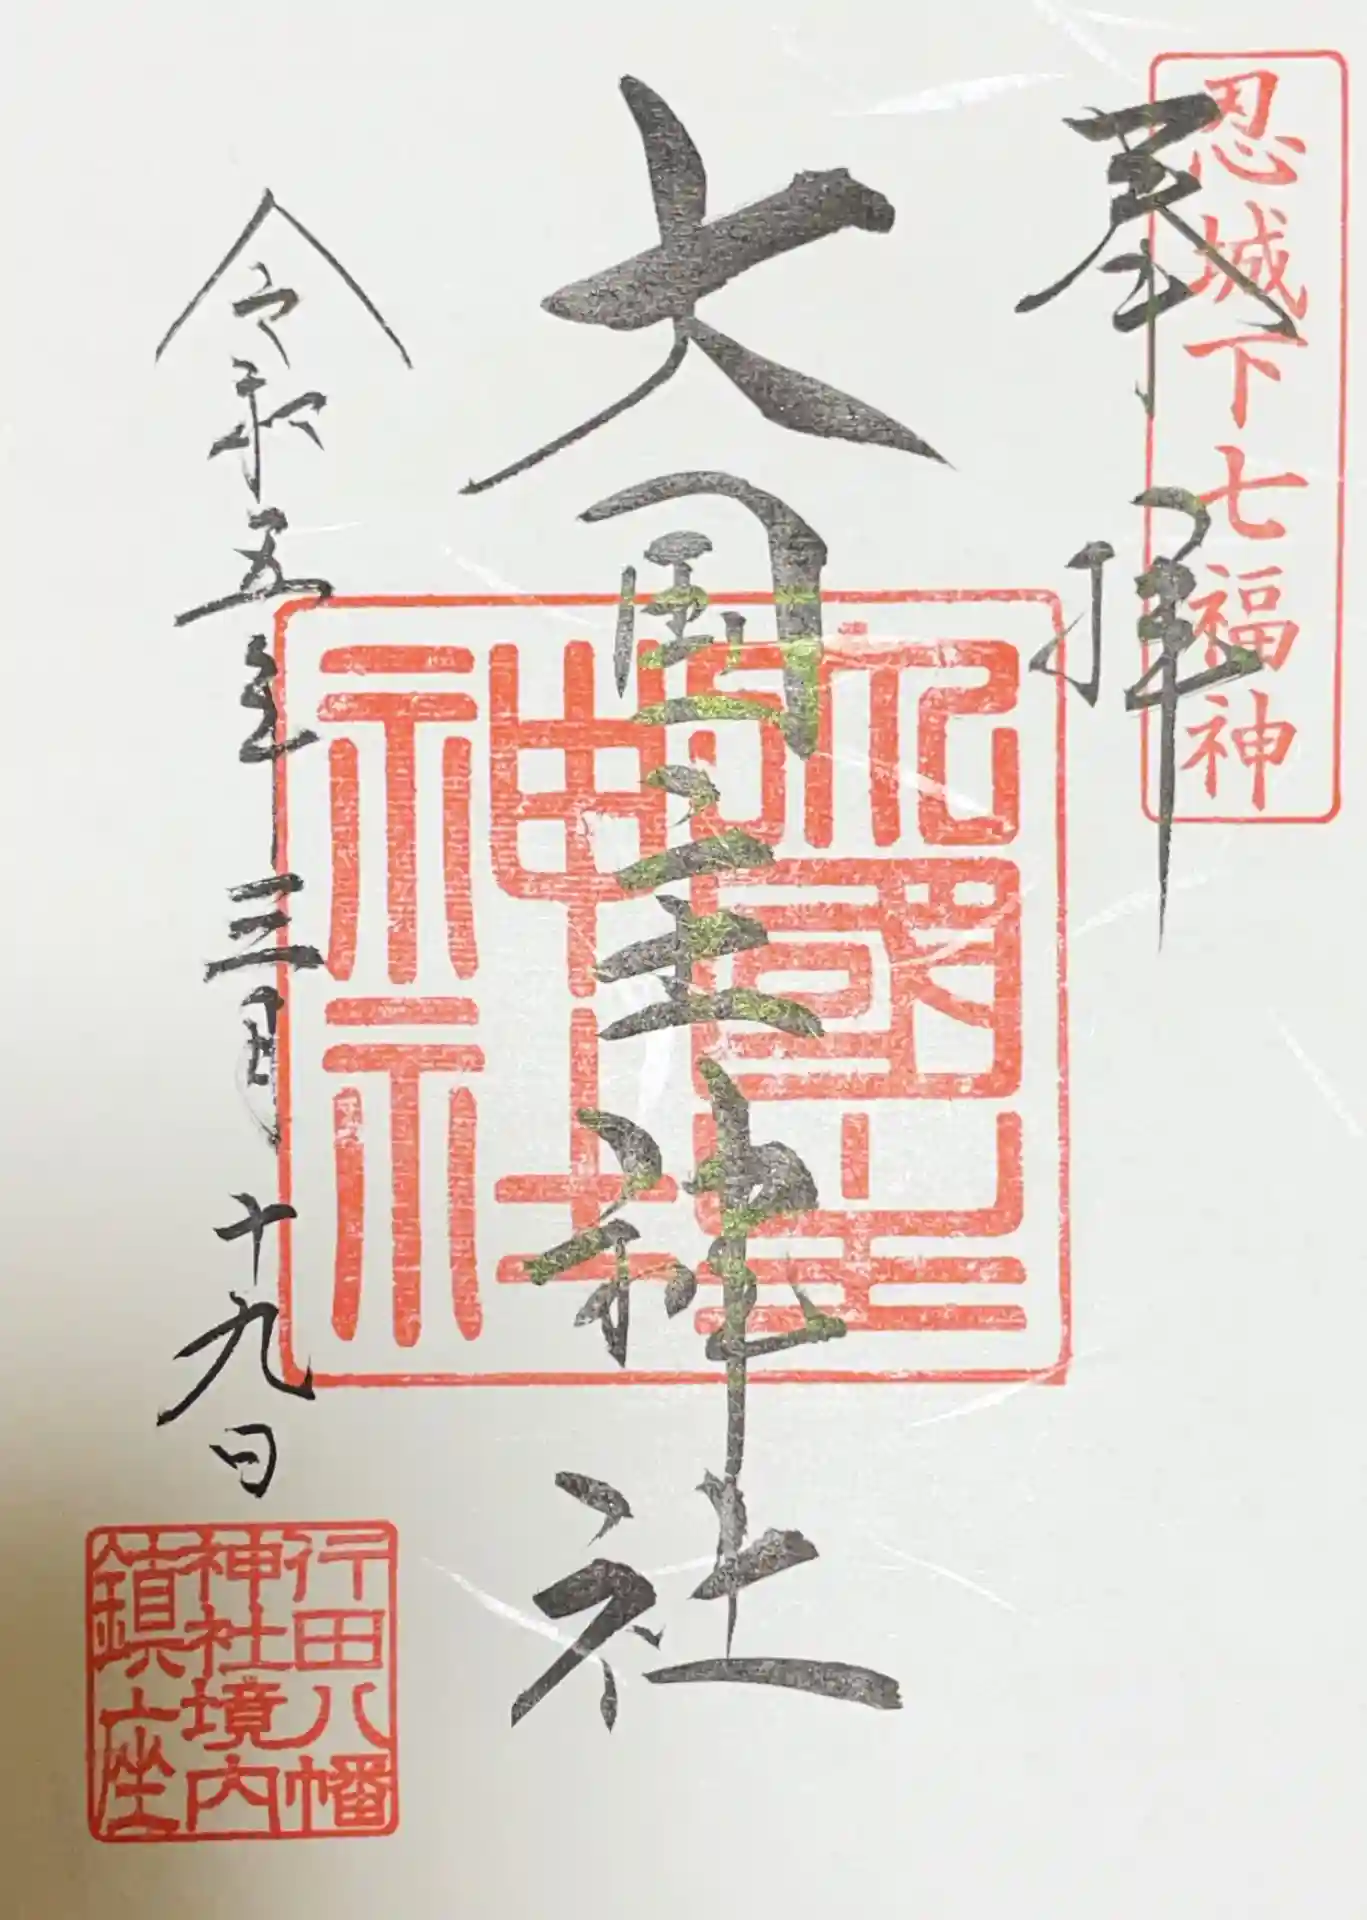 忍城下七福神
奉拝
大国主神社
大國主神社
令和五年三月十九日
行田八幡
神社境内
鎮座